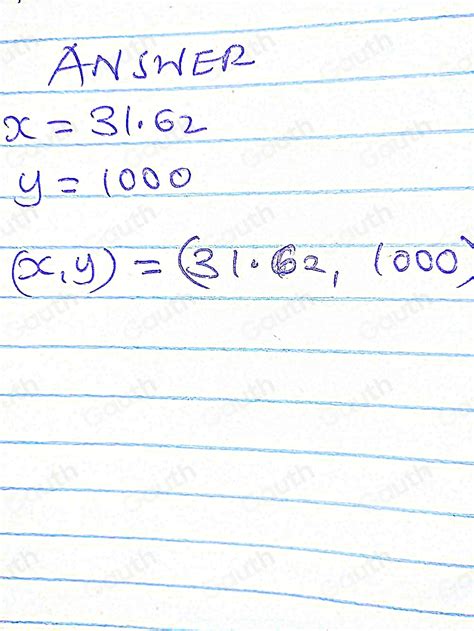 ANSWER
x = 31.62
y = 1000
(x, y) = (31.62, 1000)